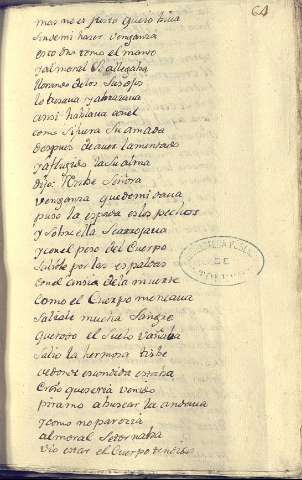 64
mas no es justo que yo biua
sin de mi haser venganza
esto dho tomo el manto
y al moral se allegaba
llorando de los sus ojos
lo besaua y abrazaua
ansi hablaua con el
como si fuera su amada
despues de auer lamentado
y afligido la su alma
dijo: Tisbe Señora
venganza que de mi daua
puso la espada en los pechos
y sobre ella se arrojaua
y con el peso del Cuerpo
salióle por las espaldas
con el ansia de la muerte
como el Cuerpo meneaua
saliale mucha sangre
que todo el suelo vañaba
salio la hermosa tisbe
de donde escondida estaba
Creio que seria venido
piramo a buscar la andaua
y como no parezia
al moral se tornaba
vio estar el Cuerpo tendido
BIBLIOTECA PUBLICA
DE
TOLEDO